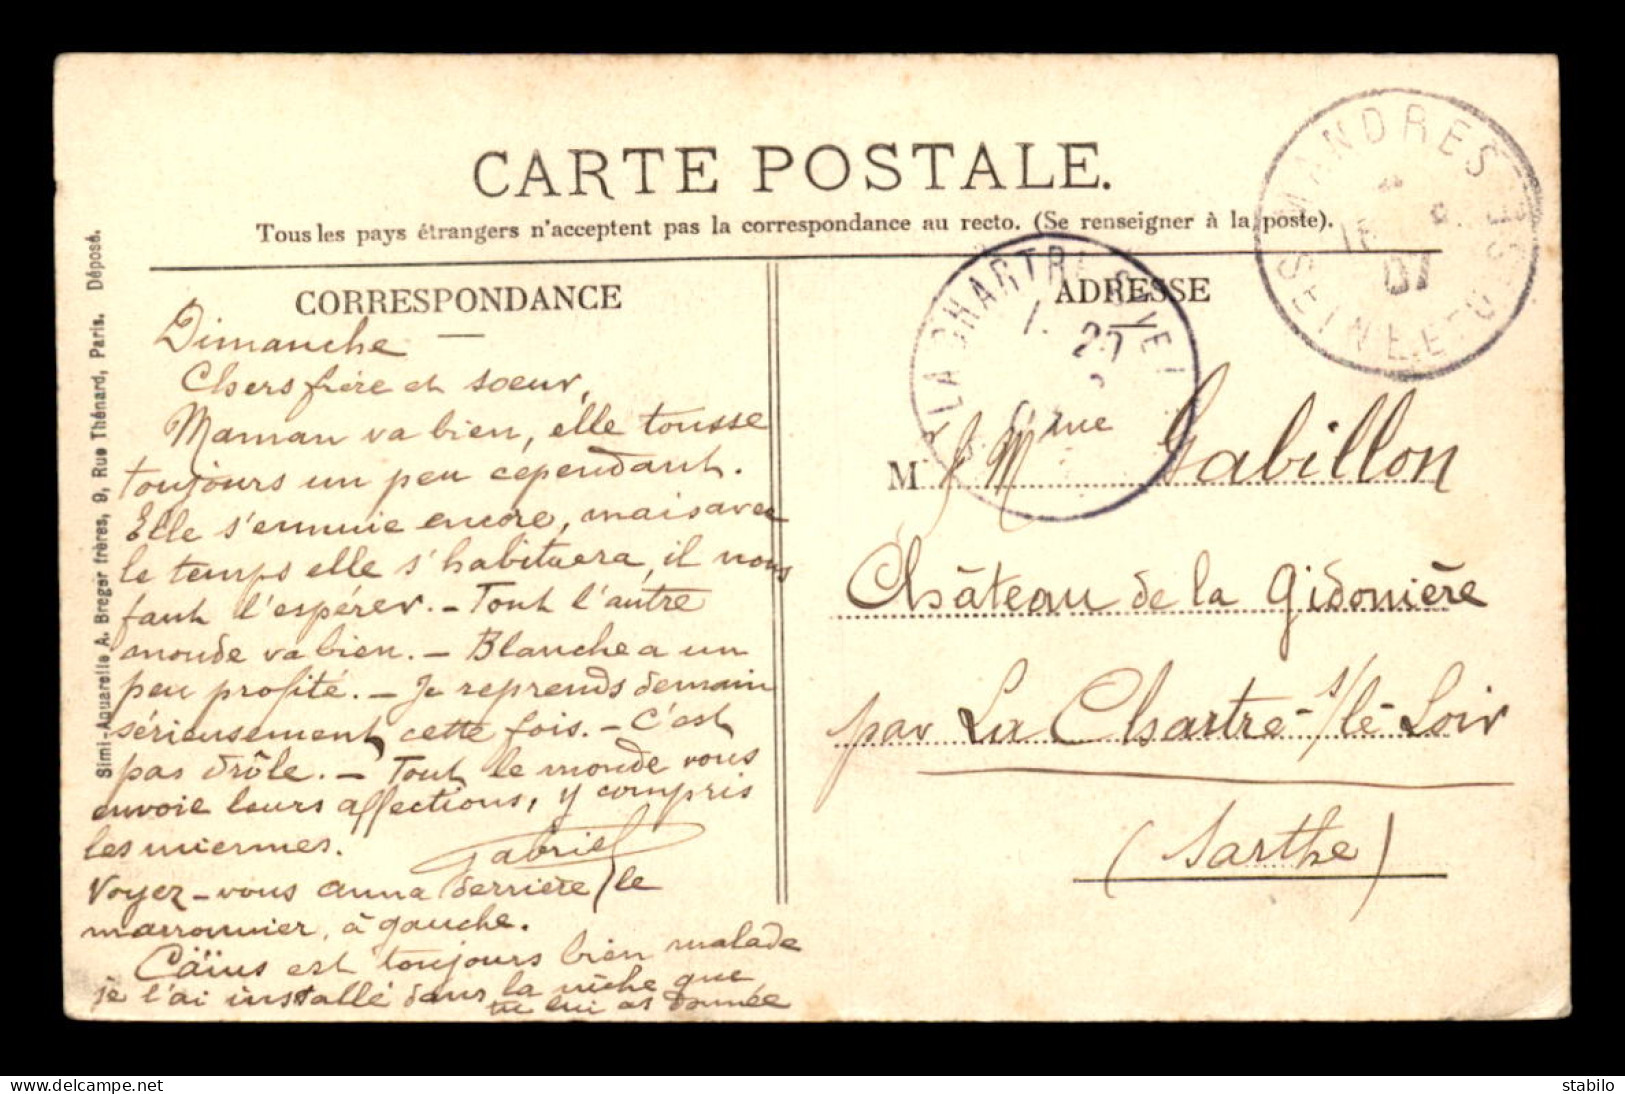 CARTE POSTALE.
Tous les pays étrangers n'acceptent pas la correspondance au recto. (Se renseigner à la poste).
Simi-Aquarelle A. Breger frères, 9, Rue Thénard, Paris. Déposé.
CORRESPONDANCE
Dimanche —
Chers frère et soeur,
Maman va bien, elle tousse
toujours un peu cependant.
Elle s'ennuie encore, mais avec
le temps elle s'habituera, il nous
faut l'espérer. – Tout l'autre
monde va bien. – Blanche a un
peu profité. – Je reprends demain
sérieusement cette fois. – C'est
pas drôle. – Tout le monde vous
envoie leurs affections, y compris
les miennes.
Gabriel
Voyez-vous anna derrière le
marronnier, à gauche.
Caïus est toujours bien malade
je l'ai installé dans la niche que
tu lui as donnée
ADRESSE
MANDRES
SEINE-ET-OISE
07
LA CHARTRE
20
M Mme Gabillon
Château de la Gidonière
par La Chartre-s/le-Loir
(Sarthe)
stabilo